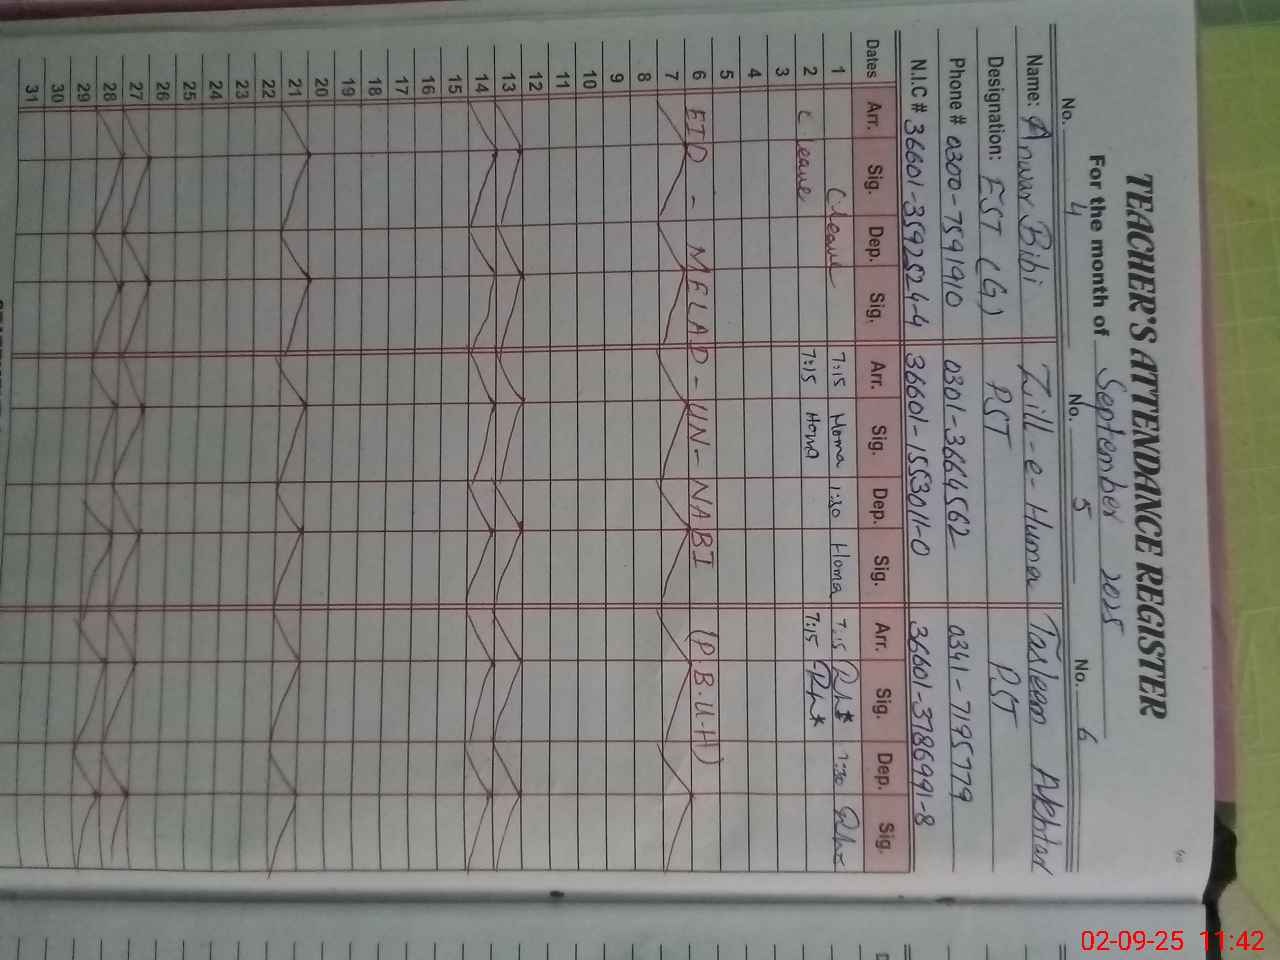 TEACHER'S ATTENDANCE REGISTER
For the month of September 2025
No. 4 No. 5 No. 6
Name: Anwar Bibi Zill-e-Huma Tasleem Akhtar
Designation: EST (G) PST PST
Phone # 0300-7591910 0301-3664562 0341-7195779
N.I.C # 36601-3592524-4 36601-1553011-0 36601-3786991-8
Dates Arr. Sig. Dep. Sig. Arr. Sig. Dep. Sig. Arr. Sig. Dep. Sig.
1 C leave 7:15 Homa 1:30 Homa 7:15 1:30
2 C leave 7:15 Homa 7:15
3
4
5
6 EID - MELAD - UN - NABI (P.B.U.H)
7
8
9
10
11
12
13
14
15
16
17
18
19
20
21
22
23
24
25
26
27
28
29
30
31
02-09-25 11:42